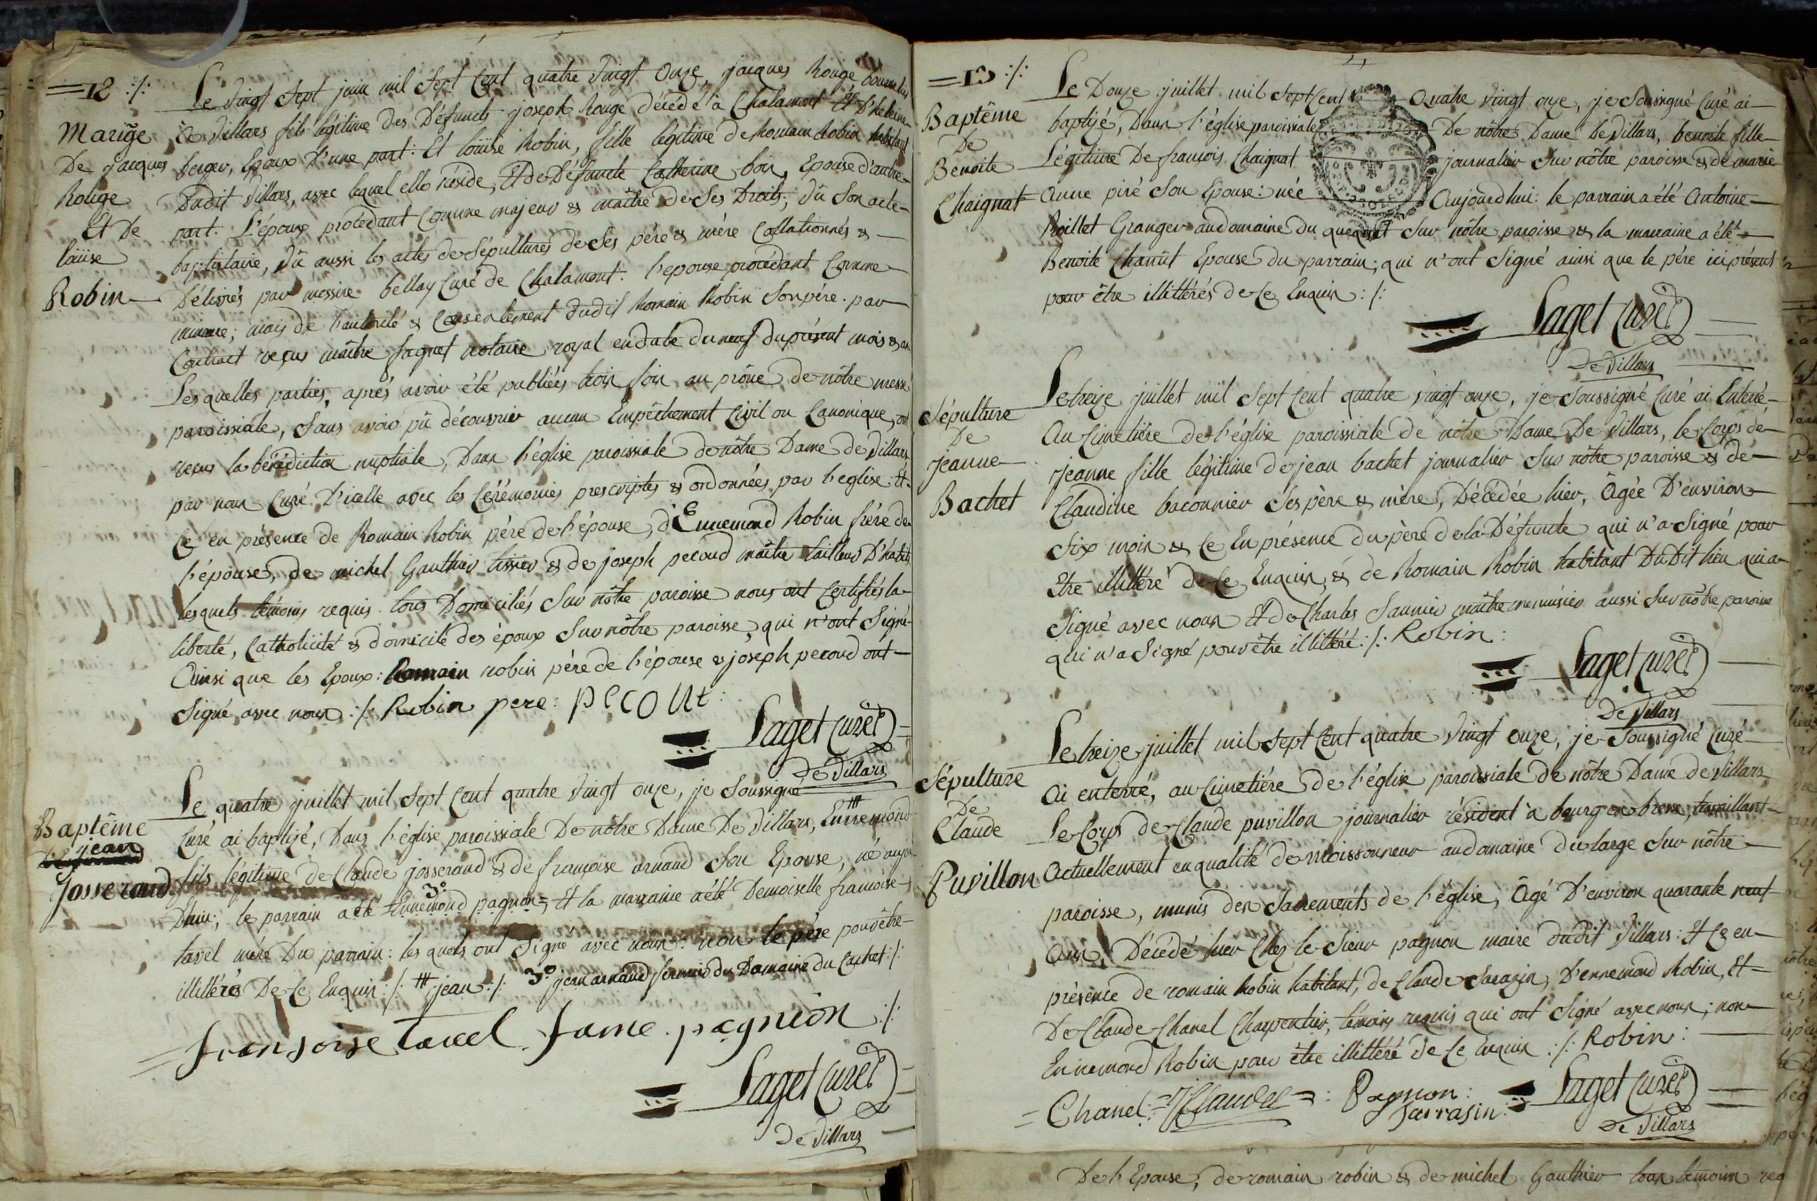 =12 ·/·
Mariage
De jacques
Rouge
Et De
loüise
Robin
Le vingt sept juin mil sept cent quatre vingt onze, jacques Rouge
de villars fils légitime des Défuncts joseph Rouge décédé à Chalamont Et
berger, Epoux D'une part: Et loüise Robin, fille légitime de Romain Robin habitant
Dudit villars, avec lequel elle réside, Et de Défuncte Catherine bon, Epouse d'autre
part. L'époux procédant comme majeur & maître de ses Droits, vû son acte
baptistaire, vû aussi les actes de sépultures de ses père & mère Collationnés &
Délivrés par messire bellay curé de Chalamont: l'epouse procédant Comme
mineure; mais de l'autorité & consentement dudit Romain Robin son père. par
Contract reçus maître fagnet notaire royal en date du neuf du présent mois & an
Lesquelles parties, après avoir été publiées trois fois au prône de nôtre messe
paroissiale, sans avoir pû découvrir aucun Empêchement Civil ou Canonique, ont
reçus la bénédiction nuptiale, Dans l'église paroissiale de nôtre Dame de Villars
par nous Curé D'icelle avec les Cérémonies prescriptes & ordonnées par l'eglise. Et
ce en présence de Romain Robin père de l'épouse, d'Ennemond Robin frère de
l'épouse, de michel Gauthier tissier & de joseph pecoud maître tailleur D'habits
lesquels témoins requis tous Domiciliés sur nôtre paroisse nous ont certifiés la
liberté, catholicité & domicile des époux sur nôtre paroisse, qui n'ont signé
Ainsi que les Epoux: Romain robin père de l'épouse & joseph pecoud ont
Signé avec nous ·/· Robin pere: pecout:
Laget Curé
De Villars
Baptême
jean
Josserand
Le quatre juillet mil sept cent quatre vingt onze, je soussigné
Curé ai baptizé, Dans l'église paroissiale De nôtre Dame De Villars, Ennemond
fils légitime de Claude josserand & de françoise arnaud son Epouse, né aujour
D'hui; le parrain a été Ennemond pagnon, Et la marraine a été Demoiselle françoise
tavel mère Du parrain: lesquels ont signé avec nous: non le père pour être
illittéré De ce Enquis ·/· jean ·/· 3° jean arnaud fermier du Domaine du Cachet ·/·
fransoise tavel fame pagnion ·/·
Laget Curé
De Villars
=13 ·/·
Baptême
De
Benoite
Chaignat
Le Douze juillet mil sept cent Quatre vingt onze, je soussigné Curé ai
baptizé, Dans l'église paroissiale De nôtre Dame De Villars, benoite fille
Légitime De françois Chaignat journalier sur nôtre paroisse & de marie
Anne piré son Epouse: née Aujourd'hui: le parrain a été Antoine
Roillet Granger au domaine du sur nôtre paroisse & la marraine a été
Benoite Chanût Epouse du parrain; qui n'ont Signé ainsi que le père ici présent
pour être illittérés de ce Enquis ·/·
Laget Curé
De Villars
Sépulture
De
Jeanne
Bachet
Le treize juillet mil sept cent quatre vingt onze, je soussigné Curé ai Enterré
Au Cimetière de l'église paroissiale de nôtre Dame De Villars, le Corps de
Jeanne fille légitime de jean bachet journalier sur nôtre paroisse & de
Claudine baconnier ses père & mère, Décédée hier, Âgée D'environ
Six mois & ce En présence du père de la Défuncte qui n'a Signé pour
Etre illittéré de ce Enquis, & de Romain Robin habitant Dudit lieu qui a
Signé avec nous Et de Charles Saunier maître menuisier aussi sur nôtre paroisse
qui n'a Signé pour être illittéré ·/· Robin:
Laget Curé
De Villars
Sépulture
De
Claude
Puvillon
Le treize juillet mil sept cent quatre vingt onze, je soussigné Curé
ai enterré, au cimetière de l'église paroissiale de nôtre Dame de Villars
Le Corps de Claude puvillon journalier résident à bourg en bresse, travaillant
Actuellement en qualité de moissonneur au domaine du large sur nôtre
paroisse, munis des Sacrements de l'église, Âgé D'environ quarante neuf
Ans, Décédé hier chez le Sieur pagnon maire dudit Villars: Et ce en
présence de romain Robin habitant, de Claude Sarazin, D'ennemond Robin, Et
De Claude Chanel Charpentier, témoins requis qui ont Signé avec nous; non
Ennemond Robin pour être illittéré de ce Enquis ·/· Robin:
= Chanel = : Pagnon:
Sarrasin:
Laget Curé
De Villars
De l'Epouse, de romain robin & de michel Gauthier tous témoins req